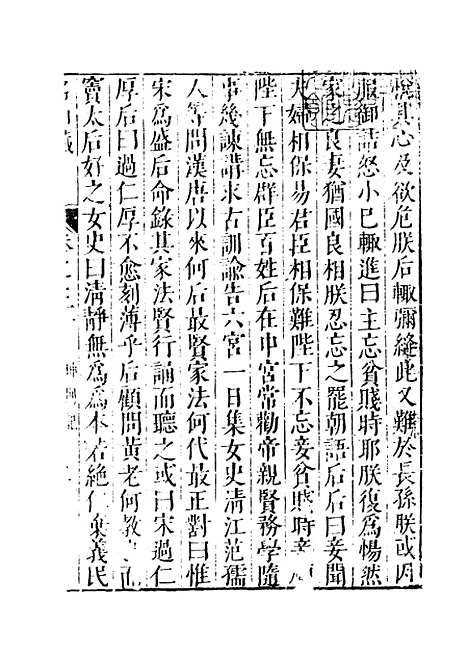 悅其心及欲危朕后輒彌縫此又難於長孫朕或因
服御詰怒小已輒進曰主忘貧賤時耶朕復爲惕然
家之良妻猶國良相朕忍忘之罷朝語后后曰妾聞
夫婦相保易君臣相保難陛下不忘妾貧賤時
陛下無忘群臣百姓后在中宮常勸帝親賢務學隨
事幾諫講求古訓諭告六宮一日集女史淸江范孺
人等問漢唐以來何后最賢家法何代最正對曰惟
宋爲盛后命錄其家法賢行誦而聽之或曰宋過仁
厚后曰過仁厚不愈刻薄乎后顧問黃老何教而
竇太后好之女史曰淸靜無爲爲本若絶仁棄義民
名山藏